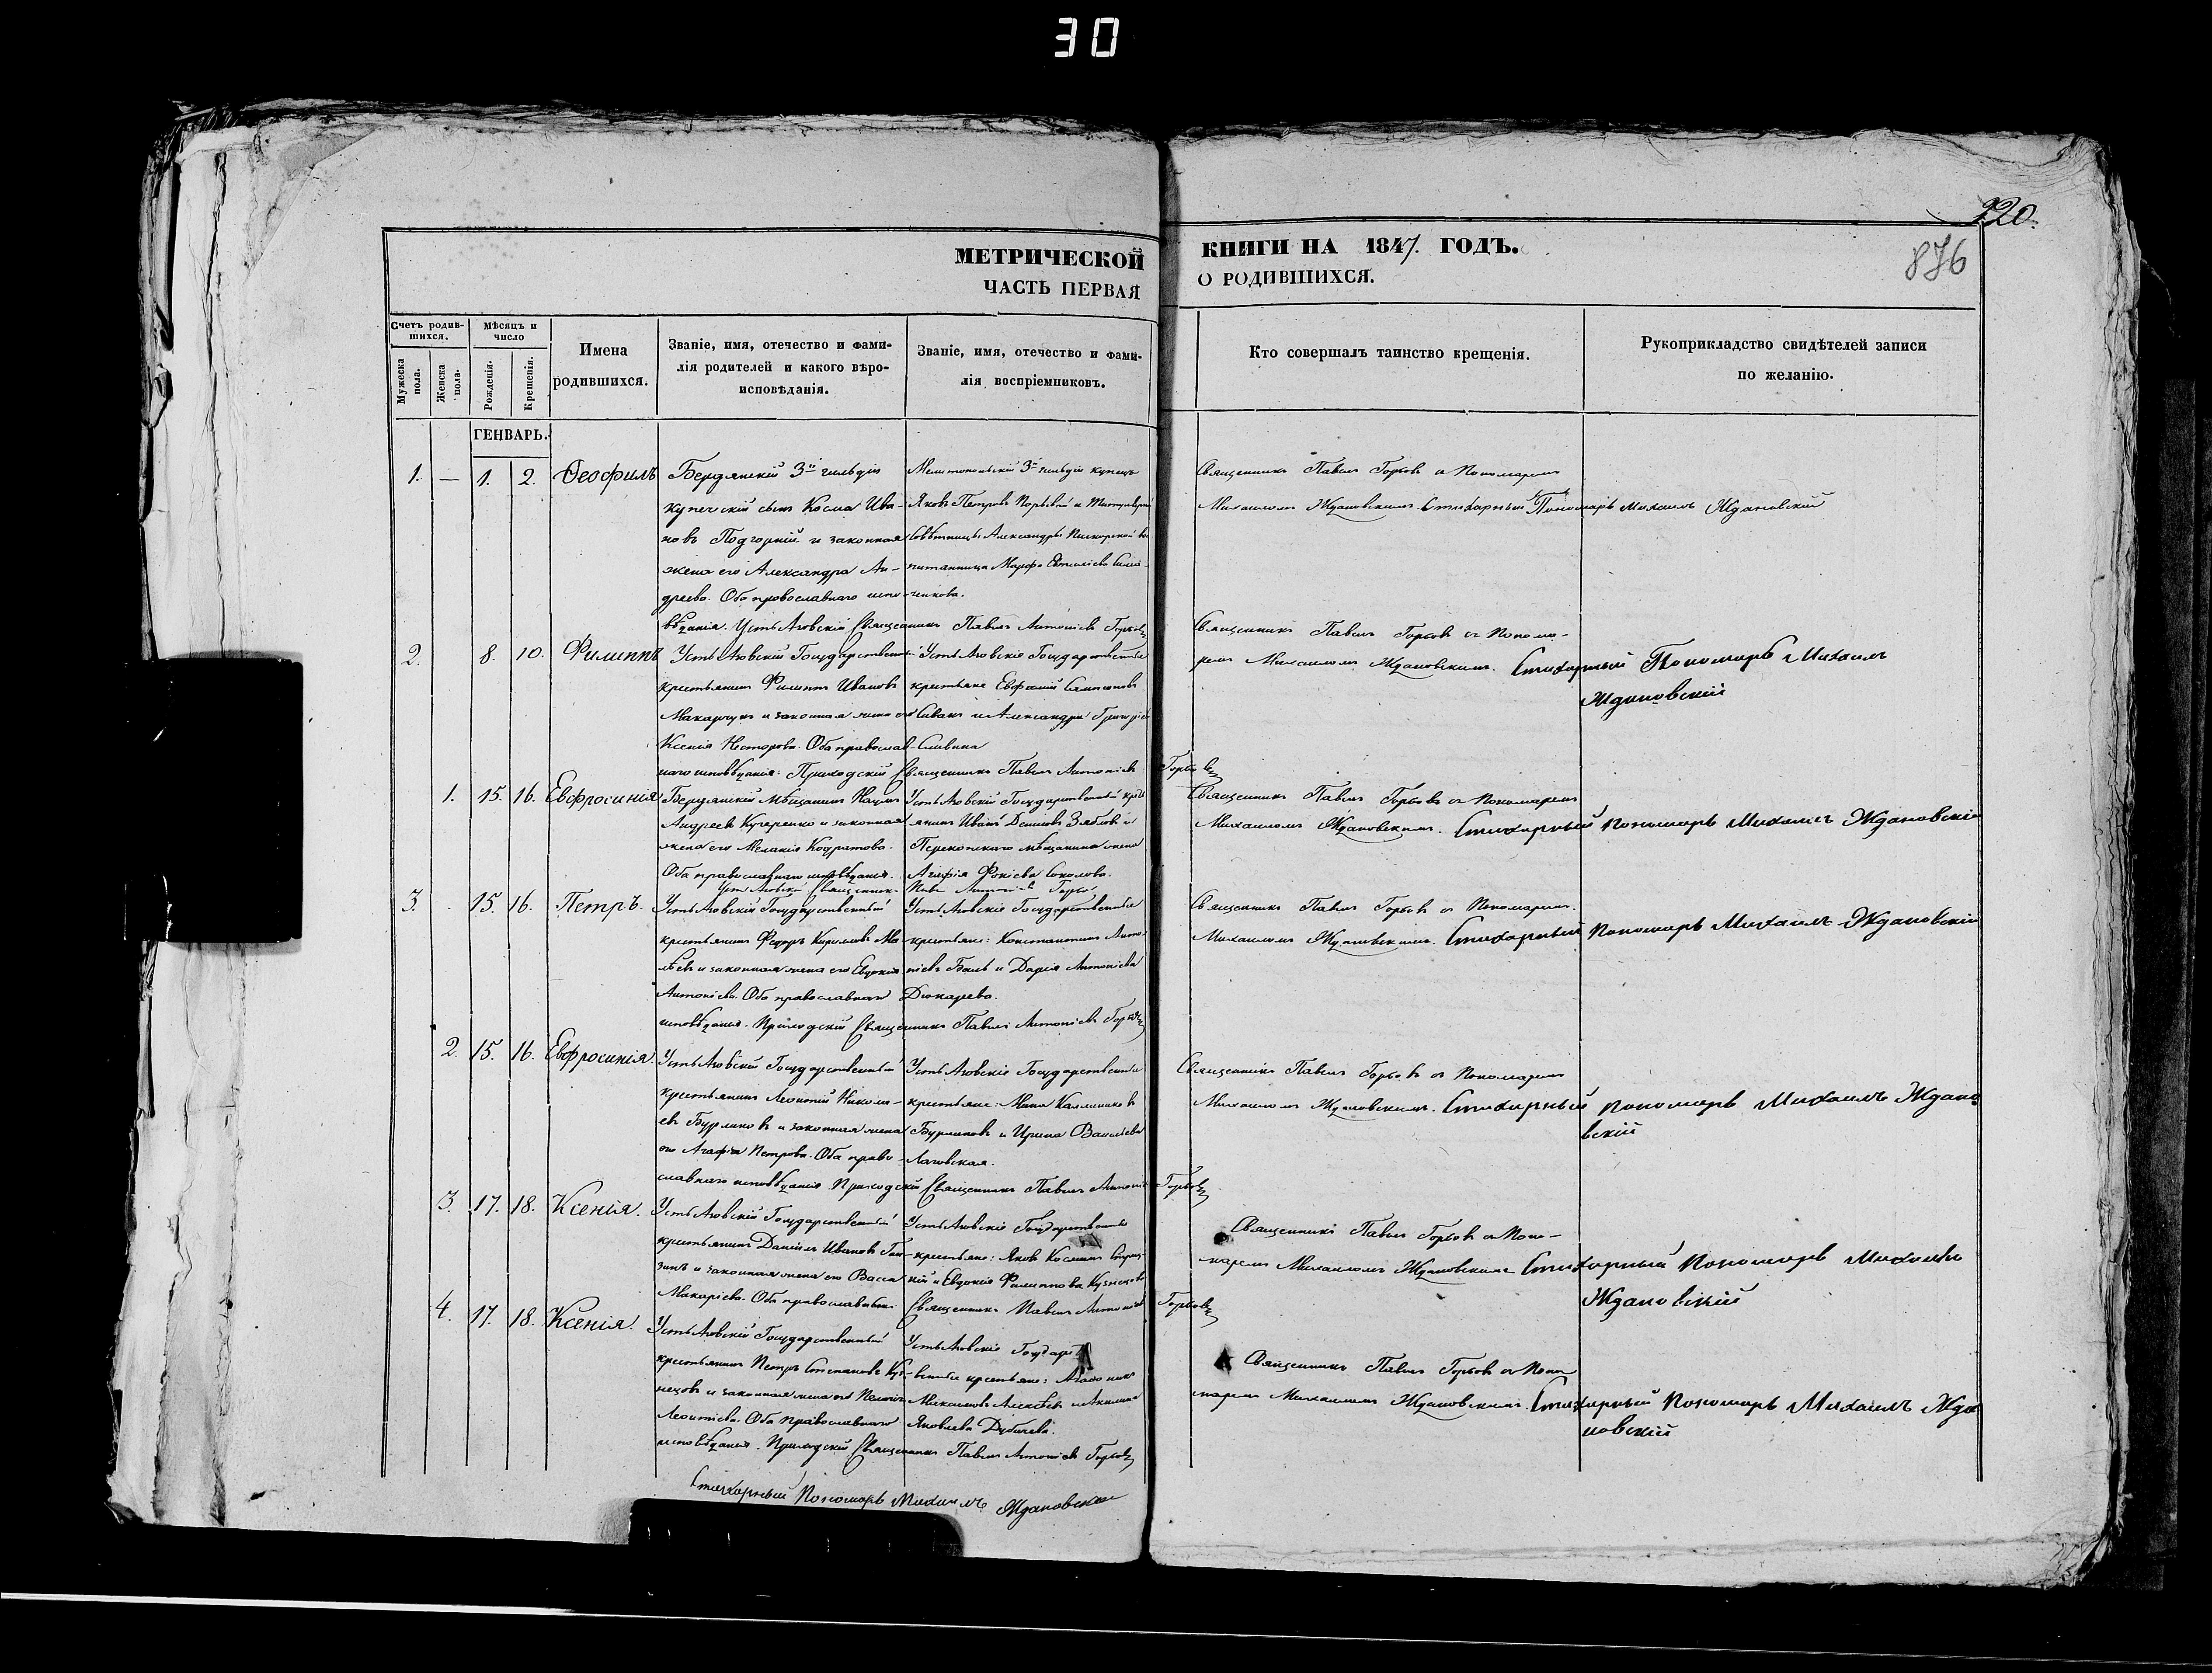 30
220.
876
МЕТРИЧЕСКОЙ КНИГИ НА 1847. ГОДЪ.
ЧАСТЬ ПЕРВАЯ О РОДИВШИХСЯ.
Счетъ родив-
шихся.
Мужеска пола.
Женска пола.
Мѣсяцъ и
число
Рожденія.
Крещенія.
Имена
родившихся.
Званіе, имя, отечество и фами-
лія родителей и какого вѣро-
исповѣданія.
Званіе, имя, отечество и фами-
лія воспріемниковъ.
Кто совершалъ таинство крещенія.
Рукоприкладство свидѣтелей записи
по желанію.
ГЕНВАРЬ.
1. — 1. 2. Ѳеофилъ
Бердянскій 3й гильдіи
купеческій сынъ Косма Ива-
новъ Подгорній и законная
жена его Александра Ан-
дреева. Оба православнаго испо-
вѣданія. Усть Азовскій Священникъ Павелъ Антоніевъ Горьов
Мелитопольскій 3й гильдіи купецъ
Яковъ Петровъ и Титулярной
Совѣтницы Александры вос-
питанница Марфа
Священникъ Павелъ Горьов съ Пономаремъ
Михаиломъ Ждановскимъ. Стихарный Пономарь Михаилъ Ждановскій
2. 8. 10. Филиппъ
Усть Азовскій Государственный
крестьянинъ Филиппъ Ивановъ
Макарчукъ и законная жена его
Ксенія Несторова. Оба православ-
наго исповѣданія: Приходскій Священникъ Павелъ Антоніевъ Горьов
Усть Азовскіе Государственные
крестьяне Евфимій
Сивакъ и Александра Григорьева
Сливина
Священникъ Павелъ Горьов съ Понома-
ремъ Михаиломъ Ждановскимъ. Стихарный Пономарь Михаилъ
Ждановскій
1. 15. 16. Евфросинія
Бердянскій мѣщанинъ Наумъ
Андреевъ Кучеренко и законная
жена его Меланія Кодратова.
Оба православнаго исповѣданія.
Усть Азовскій Священникъ Павелъ Антоніевъ Горьов
Усть Азовскій Государственный кресть-
янинъ Иванъ Денисовъ Зябловъ и
Перекопскаго мѣщанина жена
Агафія Фокіева Соколова.
Священникъ Павелъ Горьовъ съ Пономаремъ
Михаиломъ Ждановскимъ. Стихарный пономарь Михаилъ Ждановскій
3. 15. 16. Петръ.
Усть Азовскій Государственный
крестьянинъ Федоръ Кириловъ Ма-
лѣевъ и законная жена его Евдокія
Антоніева. Оба православнаго
исповѣданія. Приходскій Священникъ Павелъ Антоніевъ Горьов
Усть Азовскіе Государственные
крестьяне: Константинъ Анто-
ніевъ Баль и Дарія Антоніева
Дюкарева.
Священникъ Павелъ Горьовъ съ Пономаремъ.
Михаиломъ Ждановскимъ. Стихарный пономарь Михаилъ Ждановскій
2. 15. 16. Евфросинія.
Усть Азовскій Государственный
крестьянинъ Леонтій Никола-
евъ Бурлаковъ и законная жена
его Агафія Петрова. Оба право-
славнаго исповѣданія. Приходскій Священникъ Павелъ Антоніевъ Горьов
Усть Азовскіе Государственные
крестьяне: Мина Калиниковъ
Бурлаковъ и Ирина Василіева
Лаговская.
Священникъ Павелъ Горьовъ съ Пономаремъ
Михаиломъ Ждановскимъ. Стихарный пономарь Михаилъ Ждано
вскій
3. 17. 18. Ксенія.
Усть Азовскій Государственный
крестьянинъ Даніилъ Ивановъ Ган-
зинъ и законная жена его Васса
Макаріева. Оба православные. Священникъ Павелъ Антоніевъ Горьов
Усть Азовскіе Государственные
крестьяне: Яковъ Косминъ
и Евдокія Филиппова Кузнецова
Священникъ Павелъ Горьовъ съ Поно-
маремъ Михаиломъ Ждановскимъ Стихарный Пономарь Михаилъ
Ждановскій
4. 17. 18. Ксенія.
Усть Азовскій Государственный
крестьянинъ Петръ Степановъ Куз-
нецовъ и законная жена его Пелагія
Леонтіева. Оба православнаго
исповѣданія. Приходскій Священникъ Павелъ Антоніевъ Горьов
Усть Азовскіе Государст-
венные крестьяне: Агафоникъ
Максимовъ Алексѣевъ и Акилина
Яковлева Дубачева.
Священникъ Павелъ Горьовъ съ Поно
маремъ Михаиломъ Ждановскимъ. Стихарный пономарь Михаилъ Жда
новскій
Стихарный Пономарь Михаилъ Ждановскій